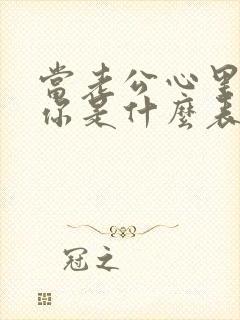 當老公心里
你是什麼表
冠之